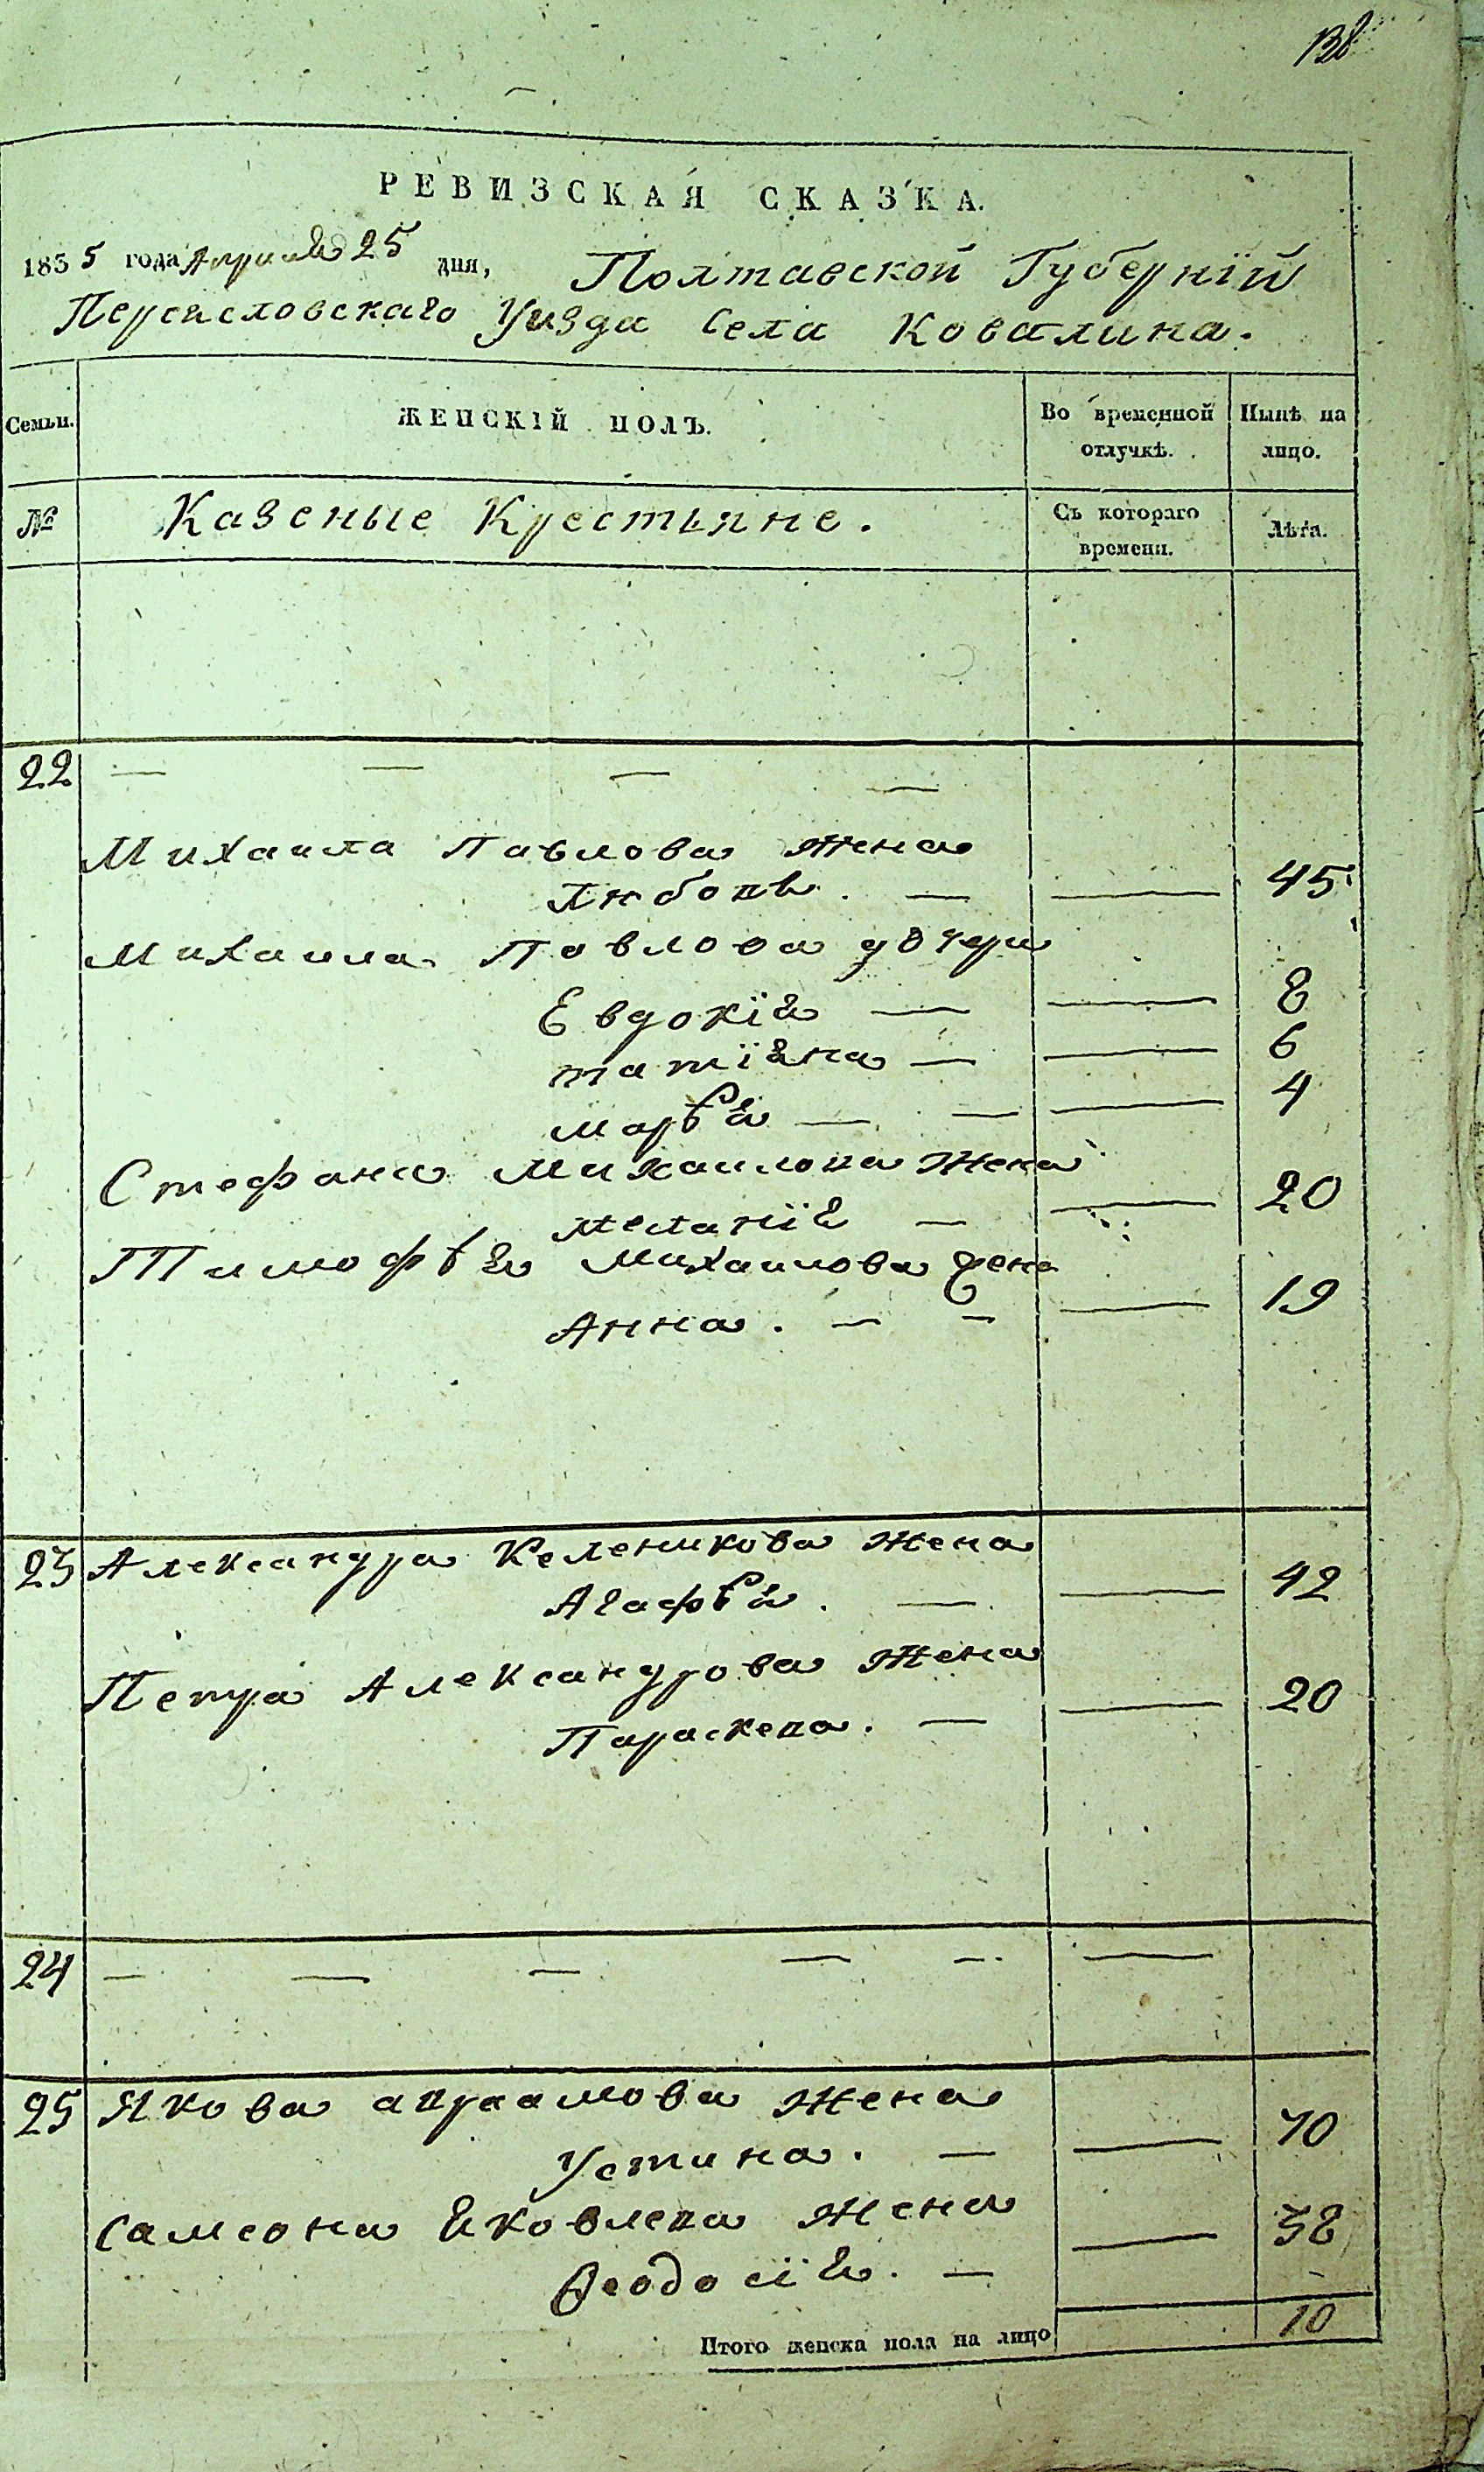 138
РЕВИЗСКАЯ СКАЗКА.
1835 года Апреля 25 дня, Полтавской Губернїй
Переясловскаго Уизда Села Ковалина.
Семьи. ЖЕНСКІЙ ПОЛЪ. Во временной отлучкѣ. Нынѣ на лицо.
№ Казеные Крестьяне. Съ котораго времени. Лѣта.
22 — — — —
Михаила Павлова жена
Любовь. — — 45
Михаила Павлова дочери
Евдокїя — — 8
татїяна — — 6
марѣя — — — 4
Стефана Михаилова Жена
меланїя — — 20
Тимофѣя Михаилова жена
Анна. — — — 19
23 Александра Келеникова жена
Агафѣя. — — 42
Петра Александрова жена
Параскева. — — 20
24 — — — — — —
25 Якова авраамова жена
Устина. — — 70
Самсона Яковлева жена
Ѳеодосїя. — — 38
Итого женска пола на лицо 10